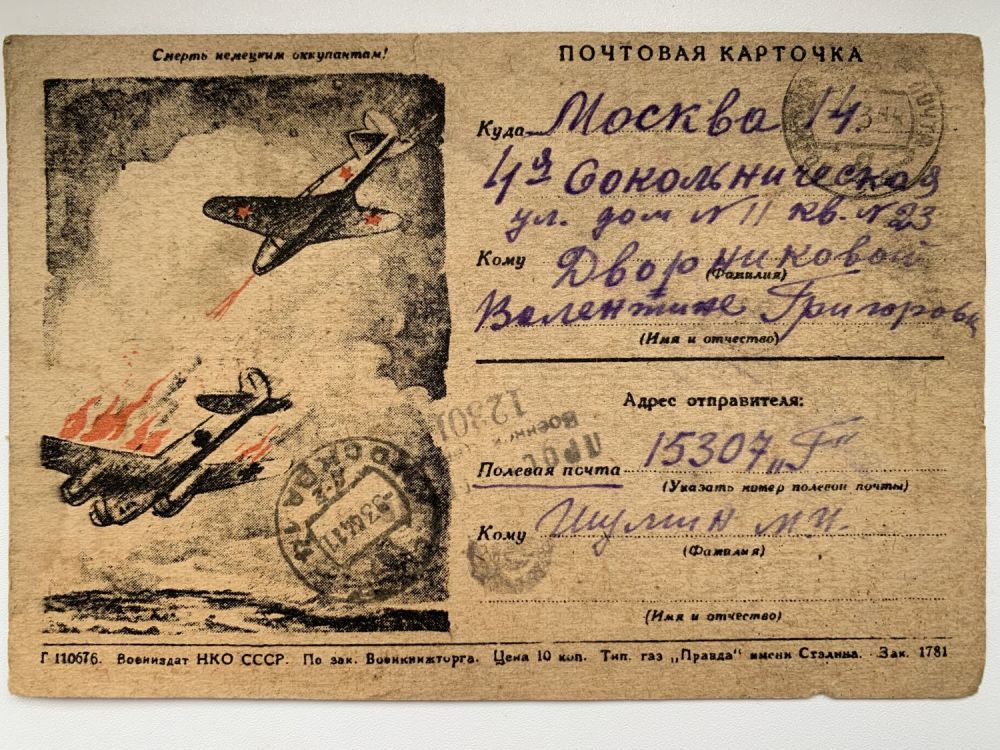 Смерть немецким оккупантам!
ПОЧТОВАЯ КАРТОЧКА
Куда Москва 14
4я Сокольническая
ул. дом N 11 кв. N 23
Кому Дворниковой
(Фамилия)
Валентине Григоровн
(Имя и отчество)
Адрес отправителя:
Полевая почта 15307 „Г“
(Указать номер полевой почты)
Кому Шулмин М И.
(Фамилия)
(Имя и отчество)
ПРОС
Военной
12301
МОСКВА
ПОЧТА
Г 110676. Воениздат НКО СССР. По зак. Военкнижторга. Цена 10 коп. Тип. газ „Правда“ имени Сталина. Зак. 1781